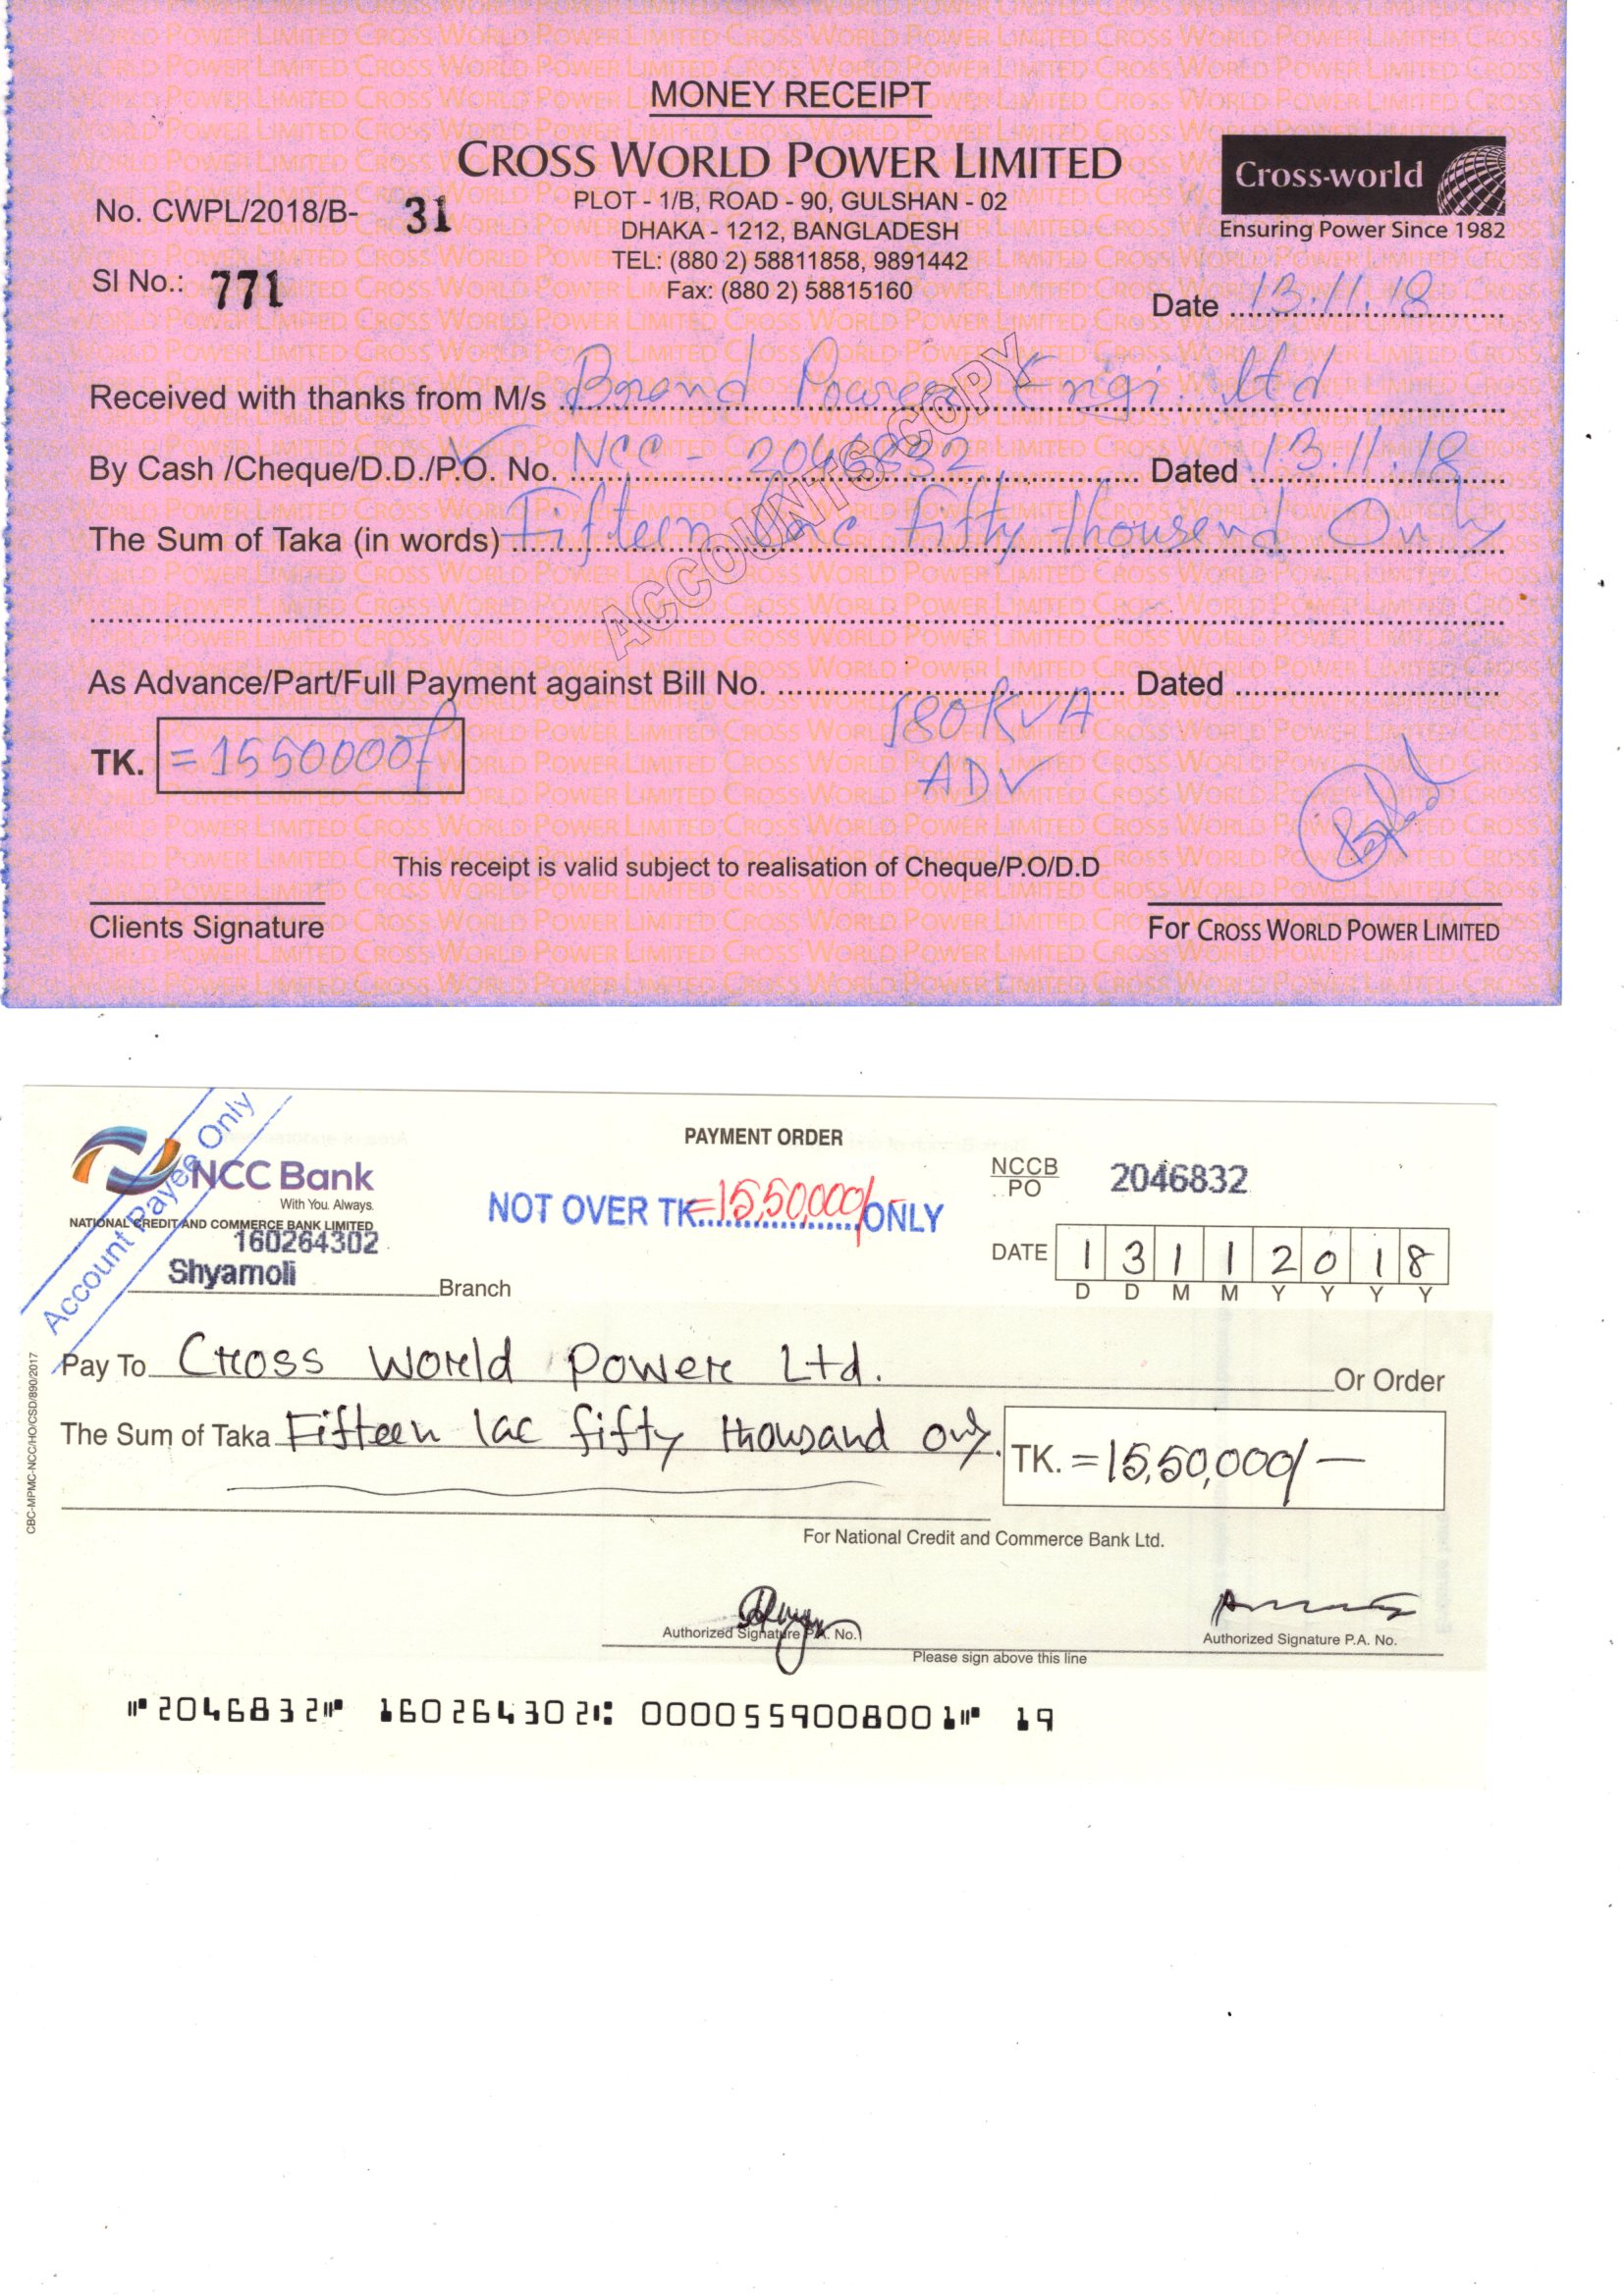 MONEY RECEIPT
CROSS WORLD POWER LIMITED
PLOT - 1/B, ROAD - 90, GULSHAN - 02
DHAKA - 1212, BANGLADESH
TEL: (880 2) 58811858, 9891442
Fax: (880 2) 58815160
Cross-world
Ensuring Power Since 1982
No. CWPL/2018/B- 31
Sl No.: 771
Date 13.11.18
Received with thanks from M/s Brand Power Engi. ltd
By Cash /Cheque/D.D./P.O. No. NCC - 2046832 Dated 13.11.18
The Sum of Taka (in words) Fifteen lac fifty thousend Only
ACCOUNTS COPY
As Advance/Part/Full Payment against Bill No. Dated
180 KVA
ADV
TK. =1550000/
This receipt is valid subject to realisation of Cheque/P.O/D.D
Clients Signature
For CROSS WORLD POWER LIMITED
Account Payee Only
NCC Bank
With You. Always.
NATIONAL CREDIT AND COMMERCE BANK LIMITED
160264302
Shyamoli Branch
PAYMENT ORDER
NOT OVER TK =15,50,000/- ONLY
NCCB
PO
2046832
DATE 1 3 1 1 2 0 1 8
D D M M Y Y Y Y
Pay To Cross World Power Ltd. Or Order
The Sum of Taka Fifteen lac fifty thousand only.
TK. =15,50,000/-
For National Credit and Commerce Bank Ltd.
Authorized Signature P.A. No.
Authorized Signature P.A. No.
Please sign above this line
CBC-MPMC-NCC/HO/CSD/890/2017
⑈2046832⑈ 160264302⑆ 0000559008001⑈ 19